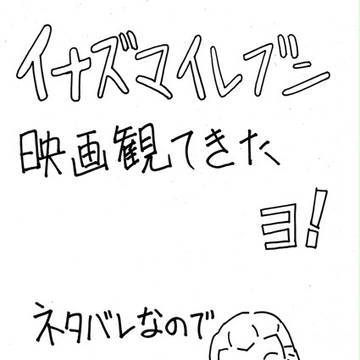 イナズマイレブン
映画観てきた
ヨ！
ネタバレなので